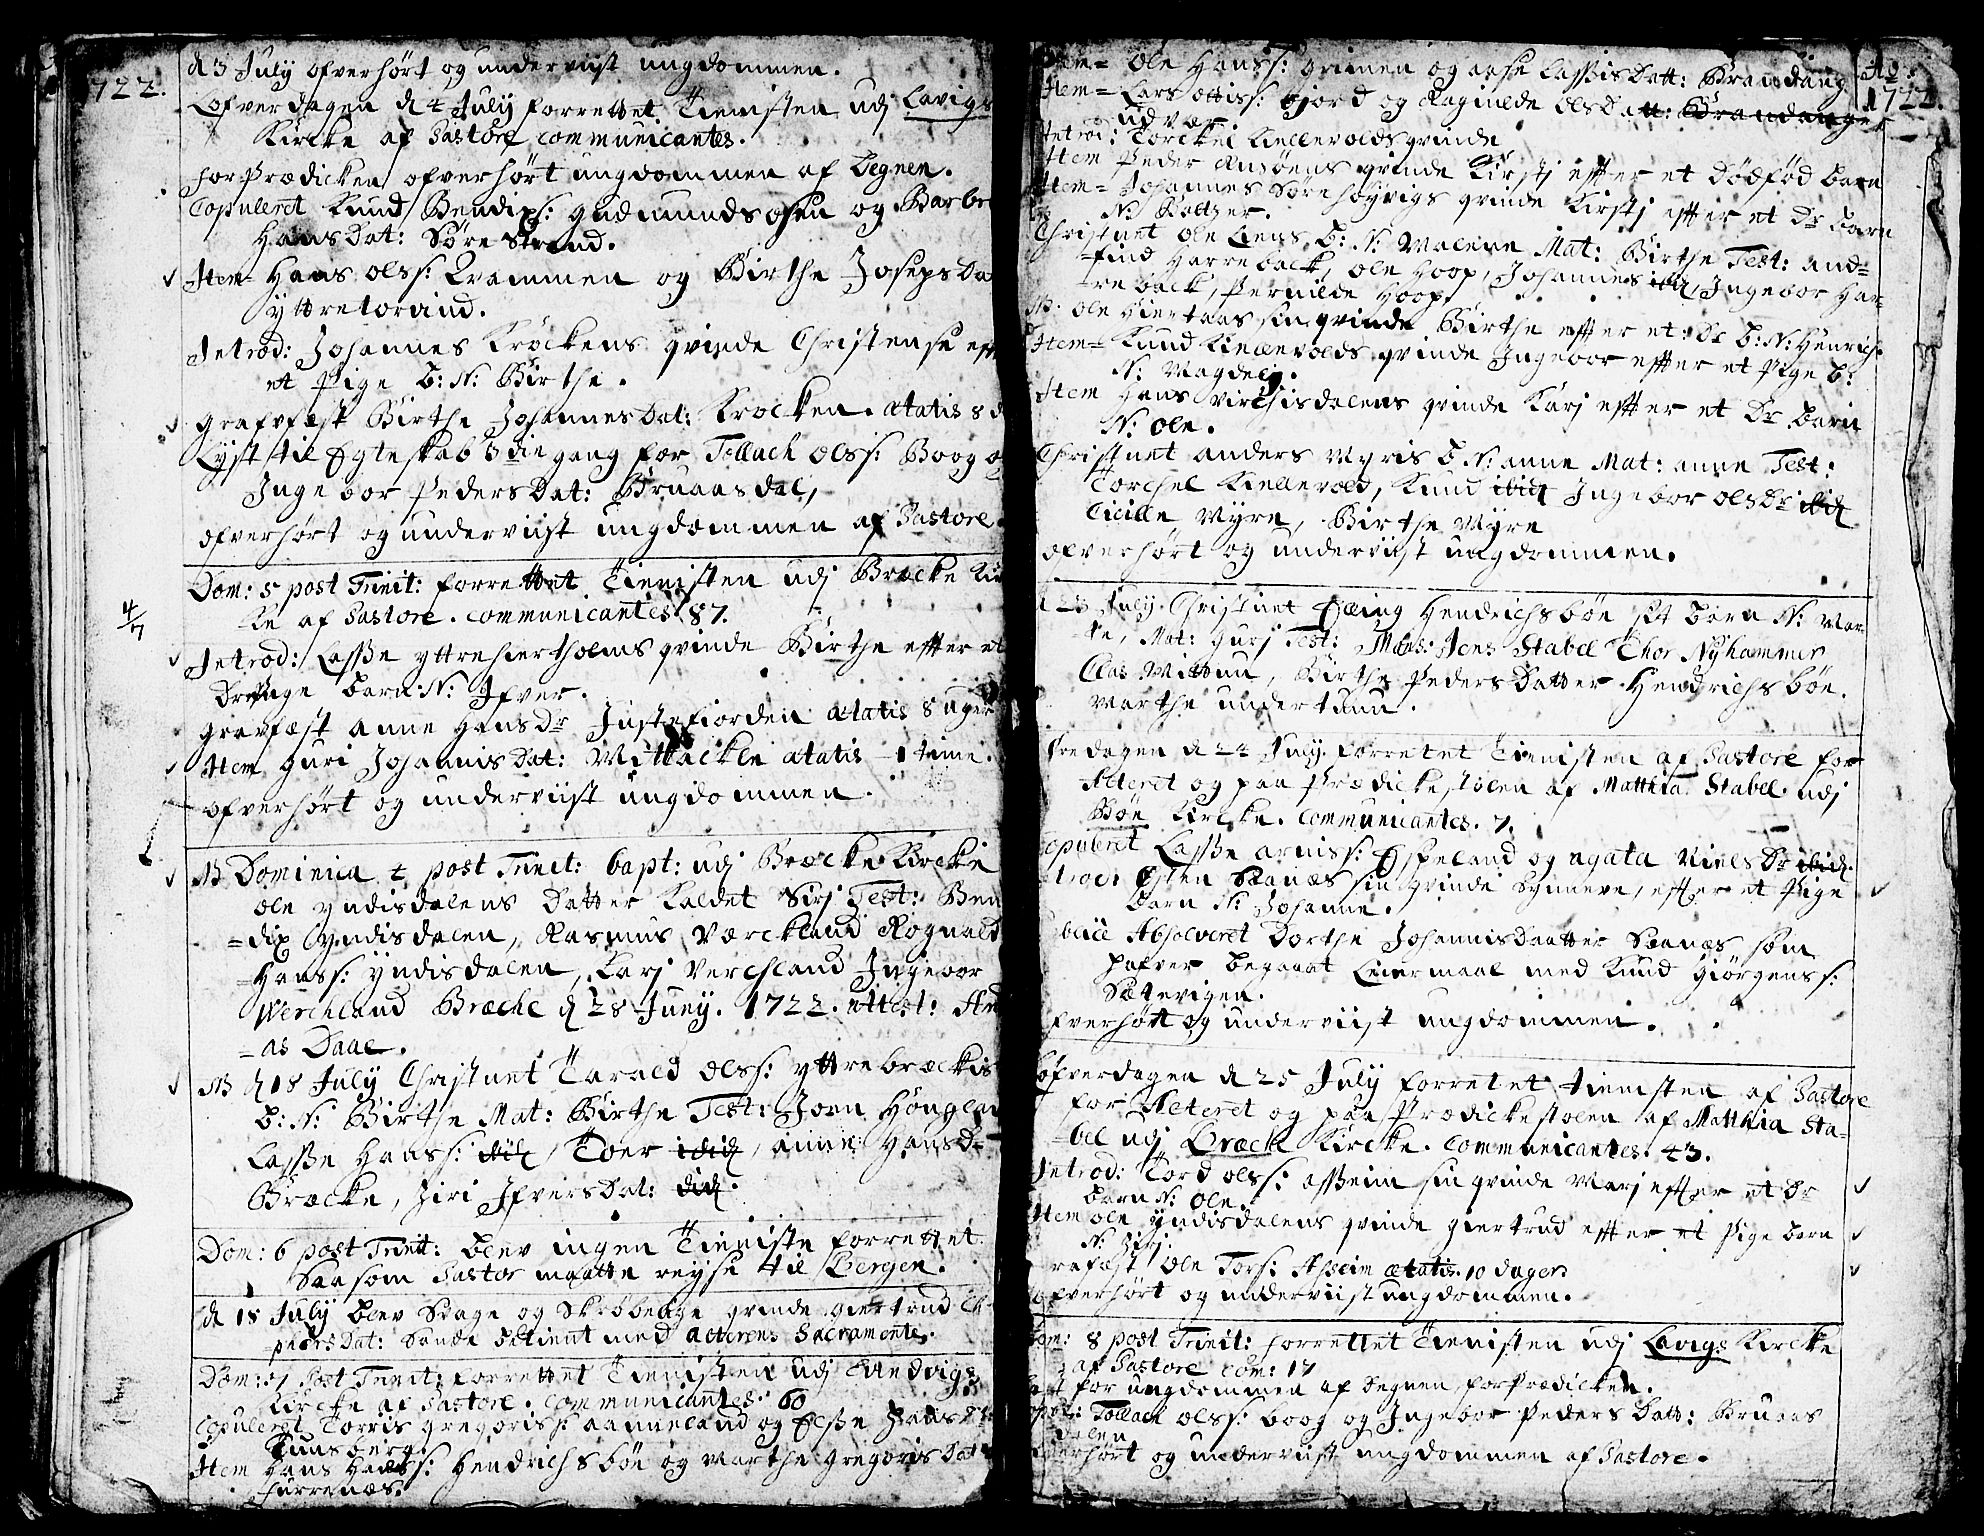 1722.
d 3 July ofverhørt og underviist ungdommen.
Løfverdagen d 4 July forrettet Tienisten udj Lavigs
Kircke af Pastore communicantes.
for Prædicken ofverhørt ungdommen af Degnen.
Copuleret Knud Bendixs: gudmundsøen og Barbr
Hansdat: Søre Strand.
Item= Hans olss: Qvammen og Birthe Josepsda
yttre
Introd: Johannes Krøckens qvinde Christense eft
et Pige b: N: Birthe.
grafvfæst Birthe Johannesdat: Krocken. ætatis 8 d
Lyst til Egteskab 3die gang for Tollach olss: Boog og
Ingebor Pedersdat: Bruaasdal,
ofverhørt og underviist ungdommen af Pastore.
Dom: 5 post Trinit: forrettet Tienisten udj Bræcke Kir
ke af Pastore. communicantes. 87.
4/7
Introd: Lasse yttrehiertholms qvinde Birthe effter et
Drenge barn: N: Ifver.
gravfæst anne Hansdr Justefiorden ætatis 8 uger
Item guri Johannisdat: Mittackle ætatis - 1 time.
ofverhørt og underviist ungdommen.
NB Dominica 4 post Trinit: bapt: udj Bræcke Kircke
ole yndisdalens datter kaldet Sirj Test: Ben
=dix yndisdalen, Rasmus Værckland Rognald
=Hanss: yndisdalen, Karj Verchland Ingebor
Werchland Bræche d 28 Junij. 1722. attest: And
=as Daae.
NB d 18 July Christnet Tarald olss: yttrebræckis
b: N: Birthe Mat: Birthe Test: Joen Høngla
Lasse Hanss: ibid, Toer ibid, anne Hansdr
Bræcke, Ziri Ifversdat: ibid.
Dom: 6 post Trinit: blev ingen Tieniste forrettet
saasom Pastor maatte reyse til Bergen.
d 18 July blev Svage og qvinde giertrud
Sande betient med alterens Sacramente.
Dom: 7 post Trinit: forrettet Tienisten udj Evindvigs
Kircke af Pastore. Communicantes. 60
Copuleret Torris gregoriss: aanneland og Else Hansdr
Tunsberg.
Item Hans Hanss: Hendrichsbøe og Marthe gregorisdat
furrenæs.
Ao:
1722.
Item= Ole Hanss: grimen og aase Lassisdatt: Brandang
Item= Lars ottiss: giord og Ragnilde olsdatt: Brandanger
udvær
Introd: Torckel Kellevolds qvinde
Item Peder qvinde Kirstj effter et dødfød barn
Item= Johannes Sørehøyvigs qvinde Kirstj effter et dr barn
N: Boltzer.
Christnet ole Liens b: N: Malene Mat: Birthe Test: and=
=find Harreback, ole Hoop, Johannes ibid, Ingebor Har=
=reback, Pernilde Hoop.
ole Hiertaas sin qvinde Birthe effter et dr b: N: Henrich.
Item= Knud Kiellevolds qvinde Ingebor effter et Pige b:
N: Magdeli.
Item Hans Virchisdalens qvinde Karj effter et Dr barn
N: ole.
Christnet anders Myris b N: anne Mat: anne Test:
Torchel Kiellevold, Knud ibid Ingebor olsdr ibid
Cicille Myre, Birthe Myre
ofverhørt og underviist ungdommen.
d 23 July. Christnet Elling Hendrichsbøe sit barn N: Mar
te, Mat: gurj Test: Mons: Jens Stabel Thor Nyhammer
Clas Mittun, Birthe Pedersdatter Hendrichsbøe.
Marthe undertunn.
fredagen d 24 July. forrettet Tienisten af Pastore for
Alteret og paa Prædickestolen af Matthia Stabel udj
Bøe Kircke. Communicantes. 7.
Copuleret Lasse arniss: Espeland og agata Nielsdr ibid.
Introd: Østen Skanæs sin qvinde Synneve, effter et Pige
barn N: Johanne.
Publice Absolveret Dorthe Johannisdaatter Skanæs som
hafver begaaet Leiermaal med Knud giørgenss:
Sætevigen.
ofverhørt og underviist ungdommen.
Løfverdagen d 25 July forrettet tienisten af Pastore
for Alteret og paa Prædickestolen af Matthia Sta=
=bel udj Bræcke Kircke. Communicantes. 43.
Introd: Tord olss: asseim sin qvinde Marj effter et dr
barn N: Ole.
Item ole yndisdalens qvinde giertrud effter et Pige barn
N: Zirj.
grafæst ole Torss: Asseim ætatis. 10 dager
ofverhørt og underviist ungdommen.
Dom: 8 post Trinit: forrettet Tienisten udj Lavigs Kircke
af Pastore com: 17
for ungdommen af Degnen for Prædicken.
Copul: Tollach olss: boog og Ingebor Pedersdatt: Bruaas
dalen
ofverhørt og underviist ungdommen af Pastore.